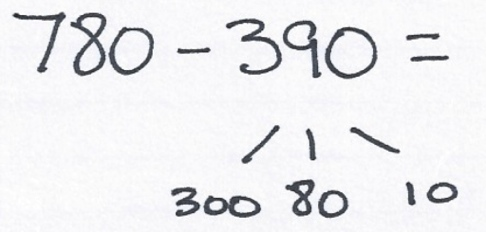 780 - 390 =
300 80 10